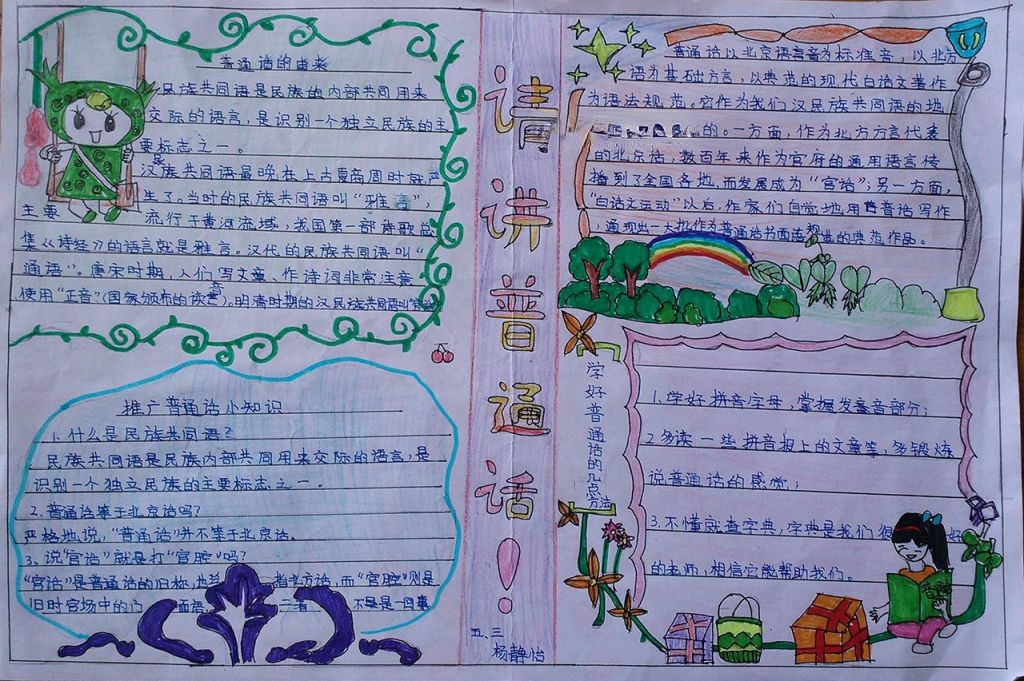 普通话的由来
民族共同语是民族的内部共同用来
交际的语言，是识别一个独立民族的主
要标志之一。
汉民族共同语最晚在上古夏商周时就产
生了。当时的民族共同语叫“雅言”，
主要流行于黄河流域，我国第一部诗歌总
集《诗经》的语言就是雅言。汉代的民族共同语叫“
通语”。唐宋时期，人们写文章、作诗词非常注意
使用“正音”（国家颁布的读音）。明清时期的汉民族共同语叫“官话
推广普通话小知识
1.什么是民族共同语？
民族共同语是民族内部共同用来交际的语言，是
识别一个独立民族的主要标志之一。
2.普通话等于北京话吗？
严格地说，“普通话”并不等于北京话。
3.说“官话”就是打“官腔”吗？
“官话”是普通话的旧称，也 指方话，而“官腔”则是
旧时官场中的门 二者 不是一回事
请讲普通话！
五、三
杨静怡
普通话以北京语言音为标准音，以北方
语为基础方言，以典范的现代白话文著作
为语法规范。它作为我们汉民族共同语的地
的。一方面，作为北方方言代表
的北京话，数百年来作为官府的通用语言传
播到了全国各地，而发展成为“官话”；另一方面，
“白话文运动”以后，作家们自觉地用 话写作
涌现出一大批作为普通话书面语规范的典范作品。
学好普通话的几点方法
1.学好拼音字母，掌握发音部分；
2.多读一些拼音报上的文章等，多锻炼
说普通话的感觉；
3.不懂就查字典，字典是我们很 好
的老师，相信它能帮助我们。